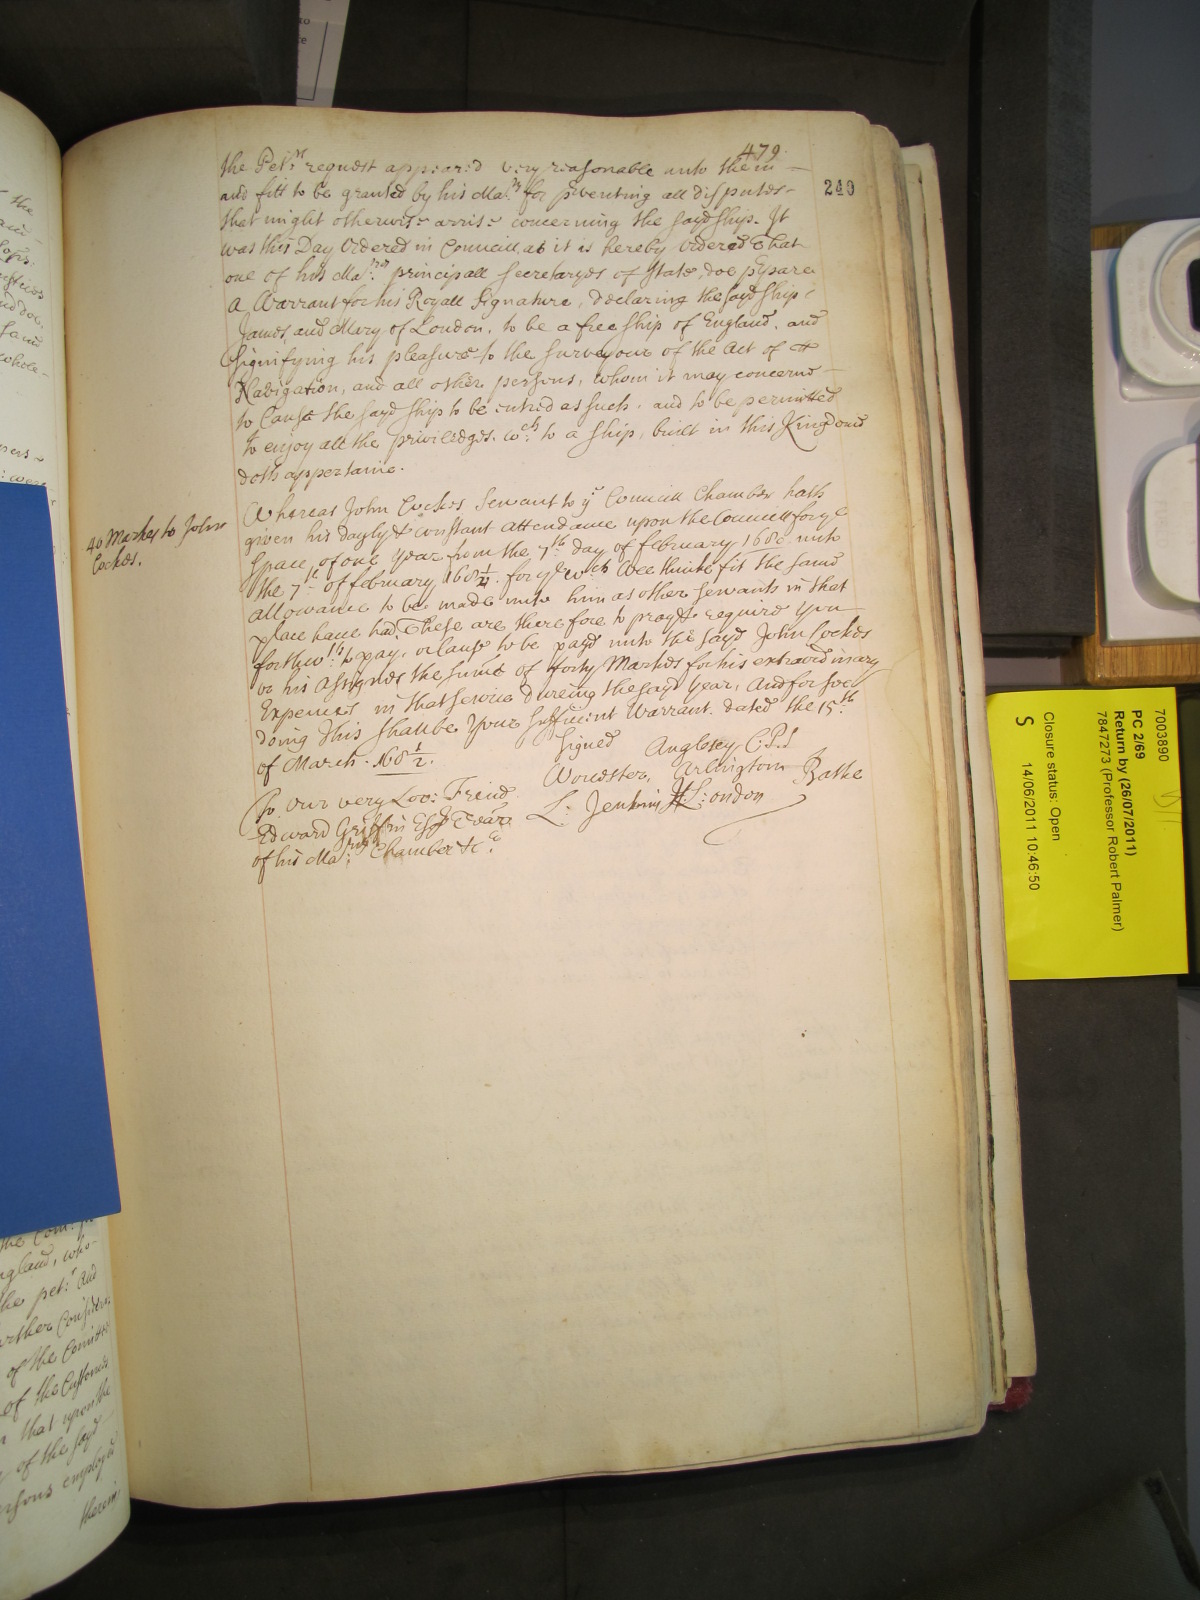 479
249
the Pet:rs request appeared very reasonable unto them
and fitt to be granted by his Ma:ty for p'venting all disputes
that might otherwise arrise concerning the sayd ship. It
was this Day Ordered in Councill, as it is hereby Ordered That
one of his Ma:ties principall Secretaryes of State, doe p'pare
a Warrant for his Royall Signature, declaring the sayd ship
James and Mary of London, to be a free ship of England, and
Signifying his pleasure to the Surveyour of the Act of
Navigation, and all other persons, whom it may concerne
to Cause the sayd ship to be entred as such, and to be permitted
to enjoy all the priviledges, w:ch to a ship, built in this Kingdome
doth appertaine.
40 Markes to John
Cockes.
Whereas John Cockes Servant to y:e Councill Chamber hath
given his dayly & constant attendance upon the Councill for ye
space of one Year from the 7:th day of february 1680 unto
the 7:th of february 168 1/2 for ye w:ch Wee thinke fit the same
allowance to be made unto him as other servants in that
place have had, These are therefore to pray & require You
forthw:th to pay, or cause to be payd unto the sayd John Cockes
or his Assignes the sume of forty Markes for his extraordinary
Expences in that service dureing the sayd year, And for soe
doing This shalbe Your sufficient Warrant. dated the 15:th
of March. 168 1/2.
Signed Anglesey C.P.S
Worcester, Arlington Bathe
L: Jenkins H: London
To Our very Lov: Freind
Edward Griffin Esq:r Trear
of his Ma:ties Chamber &c:
7003890
PC 2/69
Return by (26/07/2011)
7847273 (Professor Robert Palmer)
Closure status: Open
S 14/06/2011 10:46:50
the Com:
ngland, who
he pet:r And
urther Consider
of the Comittee
of the Customes
that upon the
of the sayd
ersons employed
therein